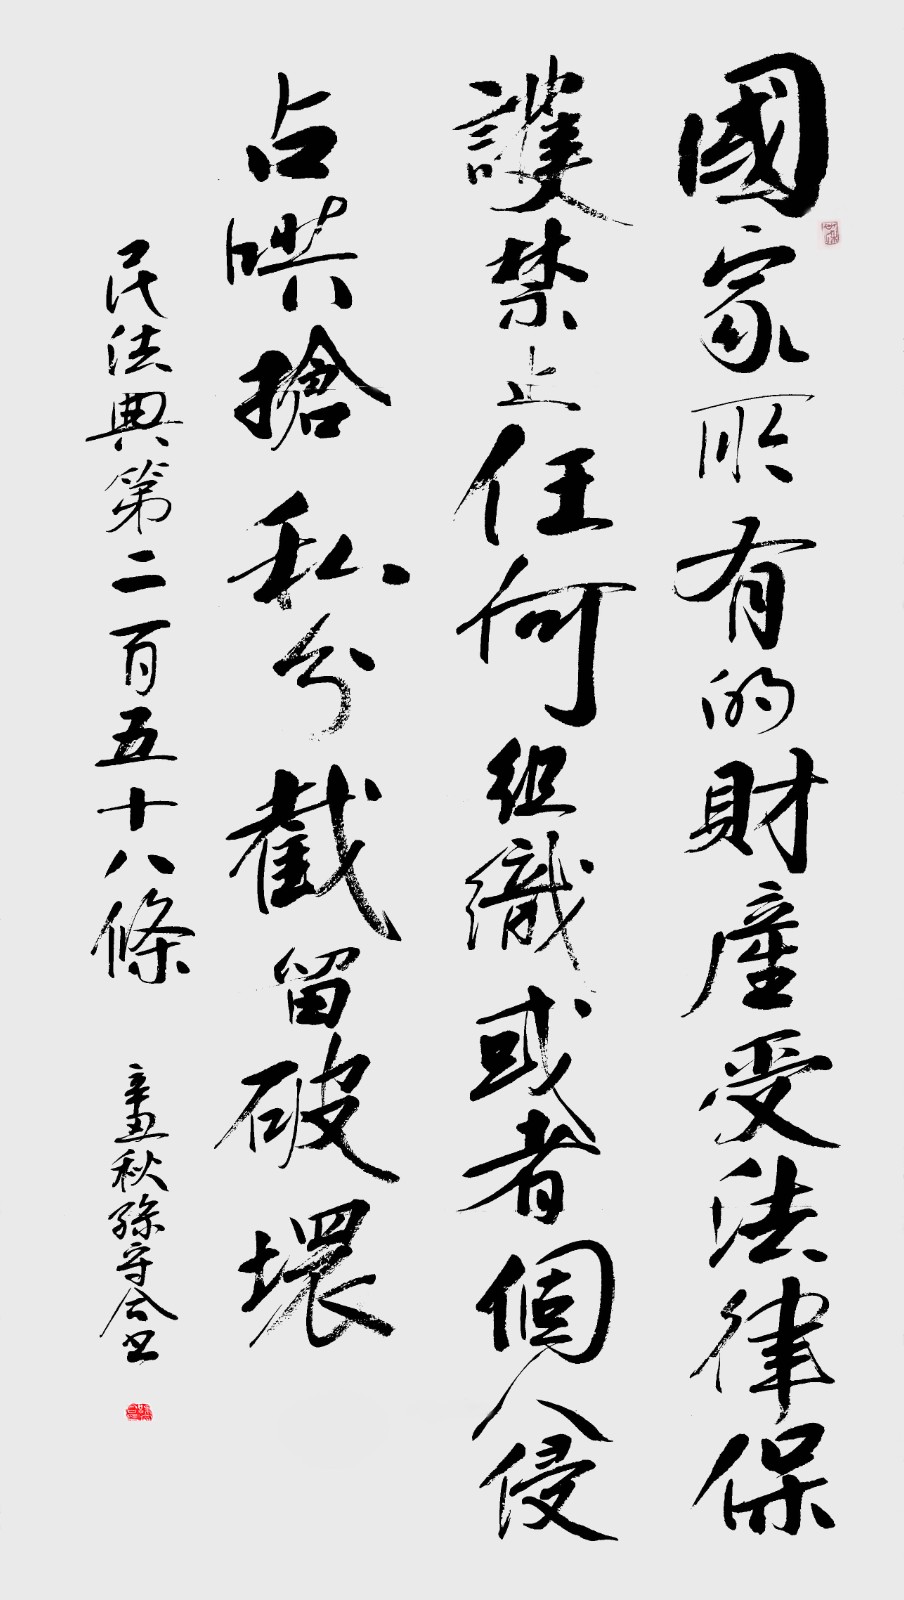 國家所有的財產受法律保
護禁止任何組織或者個人侵
占哄搶私分截留破壞
民法典第二百五十八條 辛丑秋孫守合书